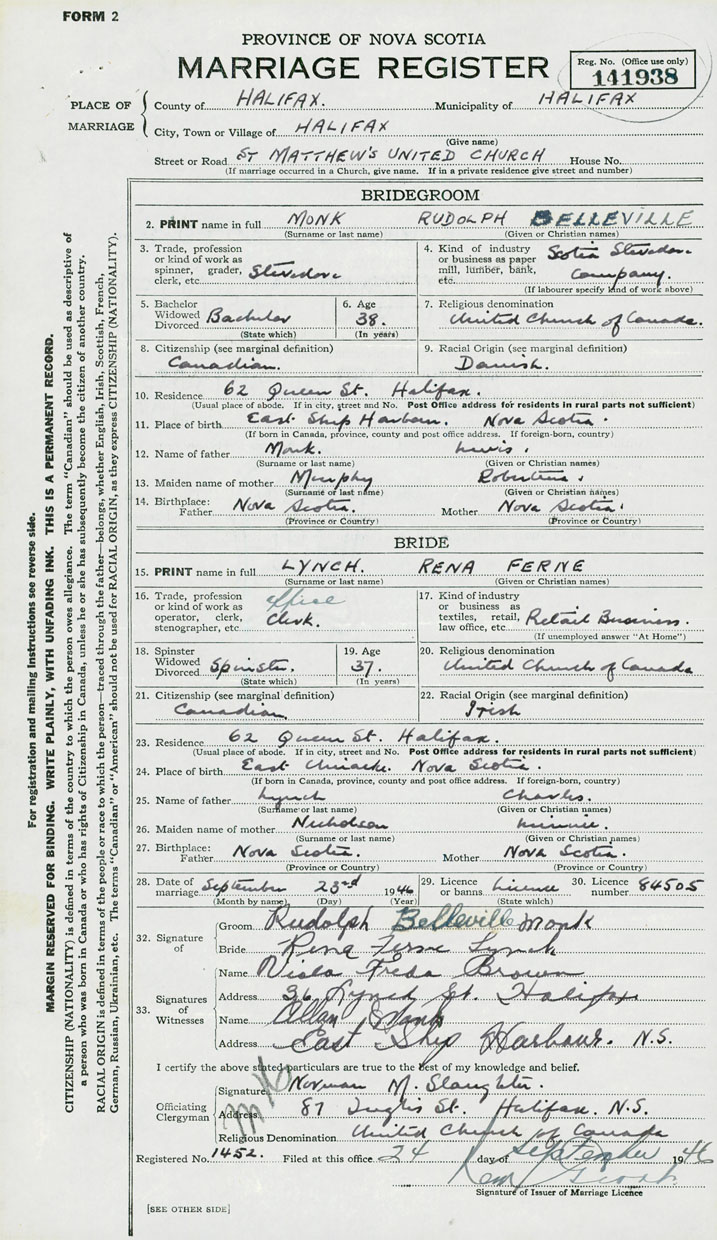 FORM 2
PROVINCE OF NOVA SCOTIA
MARRIAGE REGISTER
Reg. No. (Office use only)
141938
PLACE OF MARRIAGE
County of HALIFAX. Municipality of HALIFAX
City, Town or Village of HALIFAX
(Give name)
Street or Road ST MATTHEW'S UNITED CHURCH House No.
(If marriage occurred in a Church, give name. If in a private residence give street and number)
BRIDEGROOM
2. PRINT name in full MONK RUDOLPH BELLEVILLE
(Surname or last name) (Given or Christian names)
3. Trade, profession or kind of work as spinner, grader, clerk, etc. Stevedore
4. Kind of industry or business as paper mill, lumber, bank, etc. Scotia Stevedore Company.
(If labourer specify kind of work above)
5. Bachelor Widowed Divorced Bachelor
(State which)
6. Age 38.
(In years)
7. Religious denomination
United Church of Canada.
8. Citizenship (see marginal definition)
Canadian.
9. Racial Origin (see marginal definition)
Danish.
10. Residence 62 Queen St. Halifax.
(Usual place of abode. If in city, street and No. Post Office address for residents in rural parts not sufficient)
11. Place of birth East Ship Harbour. Nova Scotia.
(If born in Canada, province, county and post office address. If foreign-born, country)
12. Name of father Monk. Lewis.
(Surname or last name) (Given or Christian names)
13. Maiden name of mother Murphy Robertena.
(Surname or last name) (Given or Christian names)
14. Birthplace: Father Nova Scotia. Mother Nova Scotia.
(Province or Country) (Province or Country)
BRIDE
15. PRINT name in full LYNCH. RENA FERNE
(Surname or last name) (Given or Christian names)
16. Trade, profession or kind of work as operator, clerk, stenographer, etc. office Clerk.
17. Kind of industry or business as textiles, retail, law office, etc. Retail Business.
(If unemployed answer "At Home")
18. Spinster Widowed Divorced Spinster.
(State which)
19. Age 37.
(In years)
20. Religious denomination
United Church of Canada
21. Citizenship (see marginal definition)
Canadian
22. Racial Origin (see marginal definition)
Irish
23. Residence 62 Queen St. Halifax.
(Usual place of abode. If in city, street and No. Post Office address for residents in rural parts not sufficient)
24. Place of birth East Uniacke. Nova Scotia.
(If born in Canada, province, county and post office address. If foreign-born, country)
25. Name of father Lynch Charles.
(Surname or last name) (Given or Christian names)
26. Maiden name of mother Nicholson Minnie.
(Surname or last name) (Given or Christian names)
27. Birthplace: Father Nova Scotia. Mother Nova Scotia.
(Province or Country) (Province or Country)
28. Date of marriage September 23rd 1946
(Month by name) (Day) (Year)
29. Licence or banns License
(State which)
30. Licence number 84505
32. Signature of
Groom Rudolph Belleville Monk
Bride Rena Ferne Lynch
33. Signatures of Witnesses
Name Viola Freda Brown
Address 36 Lynch St. Halifax
Name Allan Monk
Address East Ship Harbour. N.S.
I certify the above stated particulars are true to the best of my knowledge and belief.
Officiating Clergyman
Signature Norman M. Slaughter.
Address 87 Inglis St. Halifax. N.S.
Religious Denomination United Church of Canada
Registered No. 1452. Filed at this office 24 day of September 1946
Signature of Issuer of Marriage Licence
[SEE OTHER SIDE]
For registration and mailing instructions see reverse side.
MARGIN RESERVED FOR BINDING. WRITE PLAINLY, WITH UNFADING INK. THIS IS A PERMANENT RECORD.
CITIZENSHIP (NATIONALITY) is defined in terms of the country to which the person owes allegiance. The term "Canadian" should be used as descriptive of
a person who was born in Canada or who has rights of Citizenship in Canada, unless he or she has subsequently become the citizen of another country.
RACIAL ORIGIN is defined in terms of the people or race to which the person—traced through the father—belongs, whether English, Irish, Scottish, French,
German, Russian, Ukrainian, etc. The terms "Canadian" or "American" should not be used for RACIAL ORIGIN, as they express CITIZENSHIP (NATIONALITY).